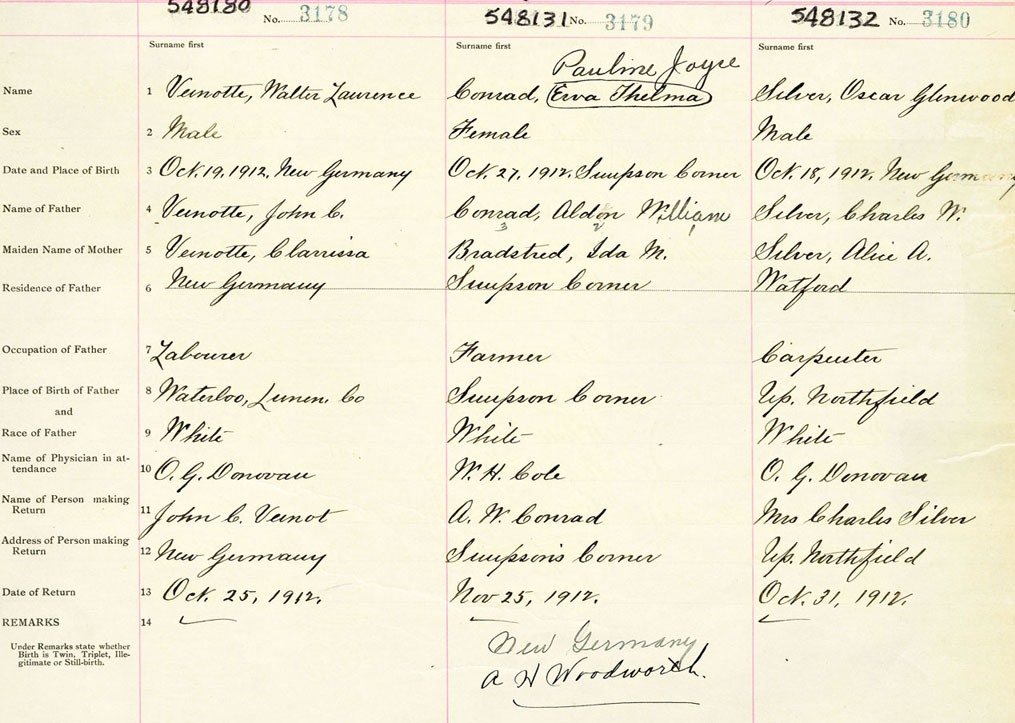 548180 No. 3178 548131 No. 3179 548132 No. 3180
Surname first Surname first Surname first
Pauline Joyce
Name 1 Veinotte, Walter Laurence Conrad, Erva Thelma Silver, Oscar Glenwood
Sex 2 Male Female Male
Date and Place of Birth 3 Oct. 19, 1912, New Germany Oct. 27, 1912. Simpson Corner Oct. 18, 1912. New Germany
Name of Father 4 Veinotte, John C. Conrad, Aldon William Silver, Charles W.
3 2 1
Maiden Name of Mother 5 Veinotte, Clarrissa Bradstred, Ida M. Silver, Alice A.
Residence of Father 6 New Germany Simpson Corner Watford
Occupation of Father 7 Labourer Farmer Carpenter
Place of Birth of Father 8 Waterloo, Lunen. Co Simpson Corner Up. Northfield
and
Race of Father 9 White White White
Name of Physician in at-
tendance 10 O. G. Donovan W. H. Cole O. G. Donovan
Name of Person making
Return 11 John C. Veinot A. W. Conrad Mrs Charles Silver
Address of Person making
Return 12 New Germany Simpson's Corner Up. Northfield
Date of Return 13 Oct. 25, 1912. Nov 25, 1912. Oct. 31, 1912.
REMARKS 14
Under Remarks state whether
Birth is Twin, Triplet, Ille-
gitimate or Still-birth.
New Germany
A H Woodworth.